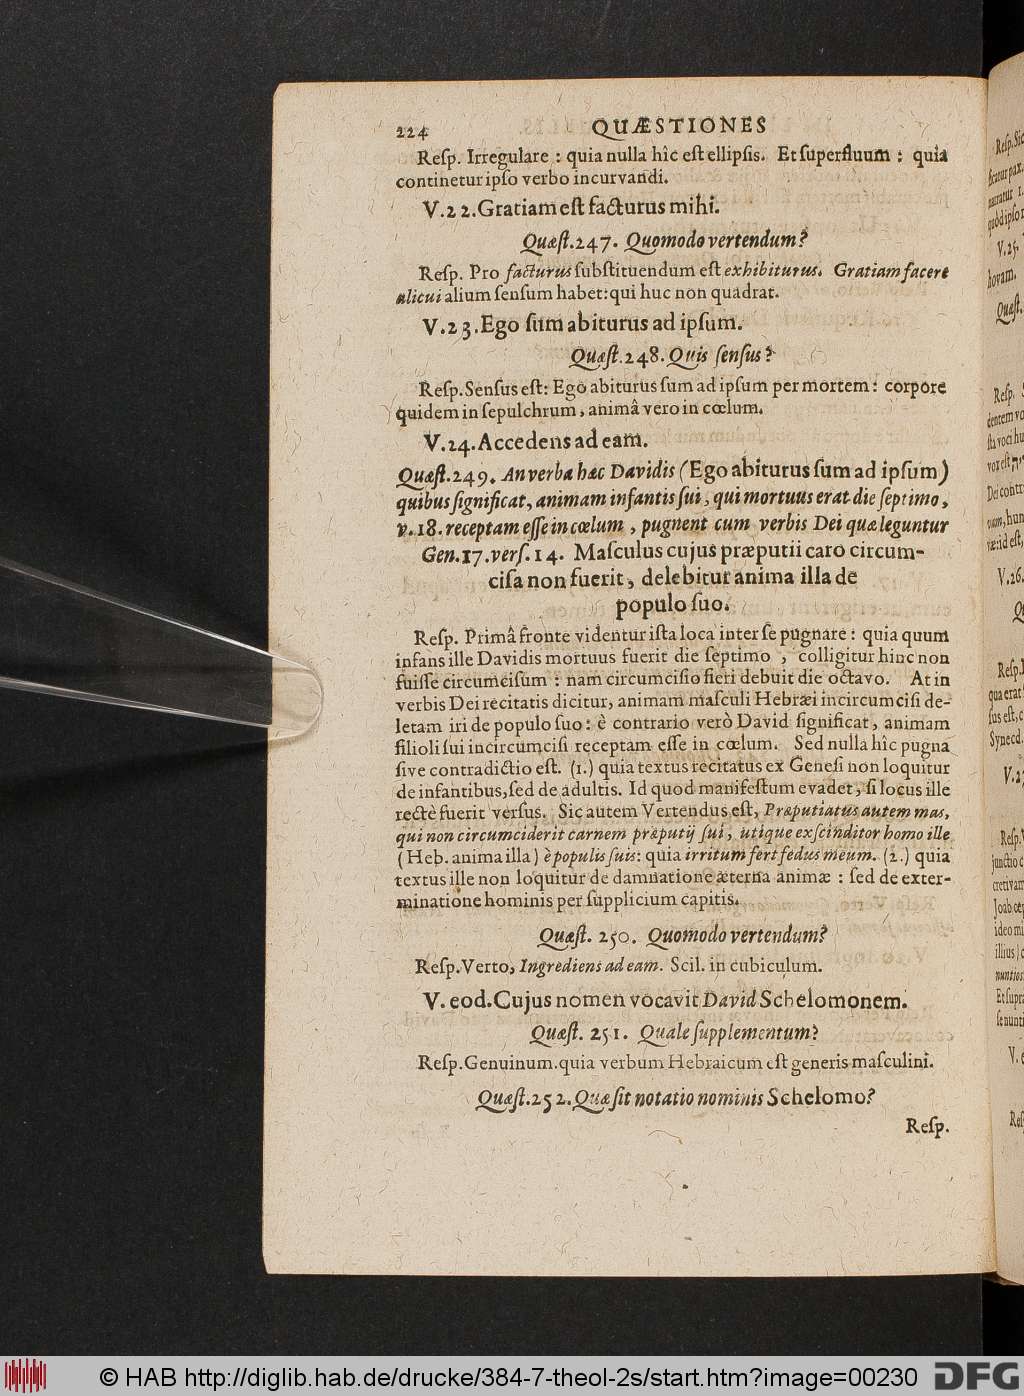 224 QUÆSTIONES
Reſp. Irregulare : quia nulla hîc eſt ellipſis. Et ſuperfluum : quia
continetur ipſo verbo incurvandi.
V.22. Gratiam eſt facturus mihi.
Quæſt.247. Quomodo vertendum?
Reſp. Pro facturus ſubſtituendum eſt exhibiturus. Gratiam facere
alicui alium ſenſum habet: qui huc non quadrat.
V.23. Ego ſum abiturus ad ipſum.
Quæſt.248. Quis ſenſus?
Reſp. Senſus eſt: Ego abiturus ſum ad ipſum per mortem: corpore
quidem in ſepulchrum, animâ vero in cœlum.
V.24. Accedens ad eam.
Quæſt.249. An verba hæc Davidis (Ego abiturus ſum ad ipſum)
quibus ſignificat, animam infantis ſui, qui mortuus erat die ſeptimo,
v.18. receptam eſſe in cœlum, pugnent cum verbis Dei quæ leguntur
Gen.17.verſ.14. Maſculus cujus præputii caro circum-
ciſa non fuerit, delebitur anima illa de
populo ſuo.
Reſp. Primâ fronte videntur iſta loca inter ſe pugnare: quia quum
infans ille Davidis mortuus fuerit die ſeptimo, colligitur hinc non
fuiſſe circumciſum: nam circumciſio fieri debuit die octavo. At in
verbis Dei recitatis dicitur, animam maſculi Hebræi incircumciſi de-
letam iri de populo ſuo: è contrario verò David ſignificat, animam
filioli ſui incircumciſi receptam eſſe in cœlum. Sed nulla hîc pugna
ſive contradictio eſt. (1.) quia textus recitatus ex Geneſi non loquitur
de infantibus, ſed de adultis. Id quod manifeſtum evadet, ſi locus ille
rectè fuerit verſus. Sic autem Vertendus eſt, Præputiatus autem mas,
qui non circumciderit carnem præputij ſui, utique exſcinditor homo ille
(Heb. anima illa) è populis ſuis: quia irritum fert fedus meum. (2.) quia
textus ille non loquitur de damnatione æterna animæ: ſed de exter-
minatione hominis per ſupplicium capitis.
Quæſt. 250. Quomodo vertendum?
Reſp. Verto, Ingrediens ad eam. Scil. in cubiculum.
V. eod. Cujus nomen vocavit David Schelomonem.
Quæſt. 251. Quale ſupplementum?
Reſp. Genuinum. quia verbum Hebraicum eſt generis maſculini.
Quæſt.252. Quæ ſit notatio nominis Schelomo?
Reſp.
© HAB http://diglib.hab.de/drucke/384-7-theol-2s/start.htm?image=00230
DFG